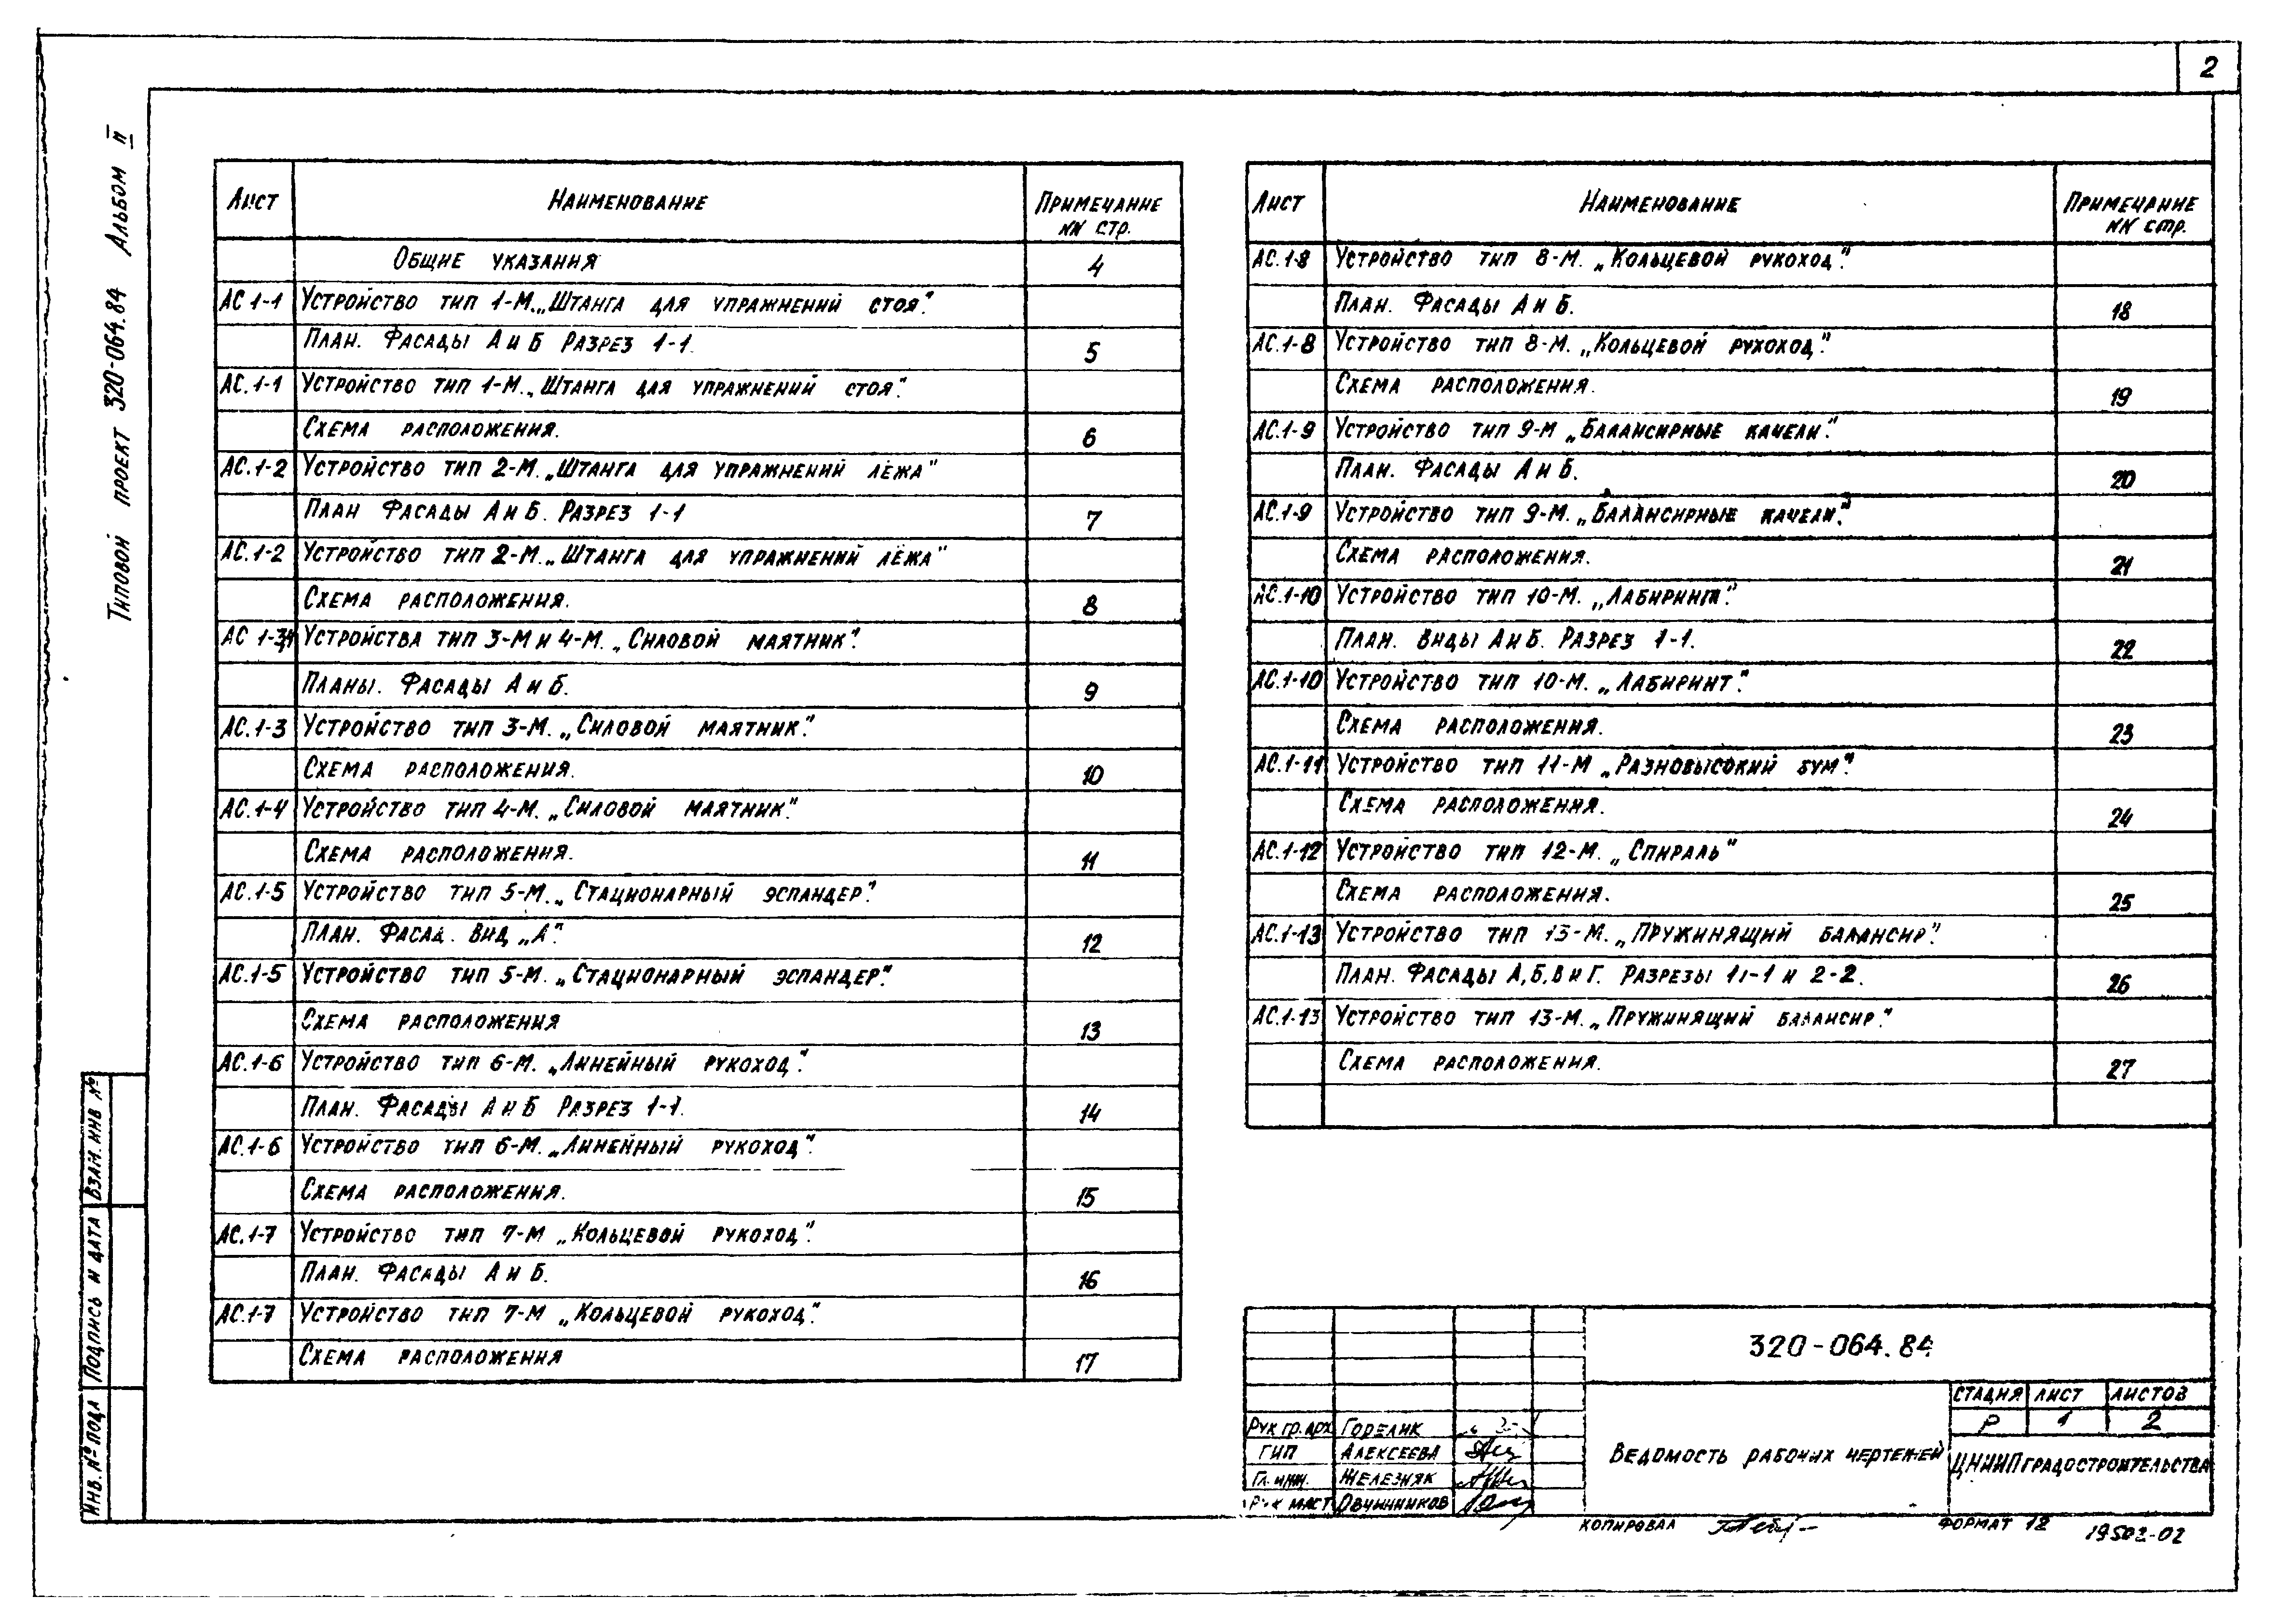 2
Типовой проект 320-064.84 Альбом II
Лист Наименование Примечание NN стр.
Общие указания 4
АС 1-1 Устройство тип 1-М. „Штанга для упражнений стоя".
План. Фасады А и Б Разрез 1-1. 5
АС.1-1 Устройство тип 1-М. „Штанга для упражнений стоя".
Схема расположения. 6
АС.1-2 Устройство тип 2-М. „Штанга для упражнений лёжа"
План Фасады А и Б. Разрез 1-1 7
АС.1-2 Устройство тип 2-М. „Штанга для упражнений лёжа"
Схема расположения. 8
АС 1-3,4 Устройства тип 3-М и 4-М. „Силовой маятник".
Планы. Фасады А и Б. 9
АС.1-3 Устройство тип 3-М. „Силовой маятник".
Схема расположения. 10
АС.1-4 Устройство тип 4-М. „Силовой маятник".
Схема расположения. 11
АС.1-5 Устройство тип 5-М. „Стационарный эспандер".
План. Фасад. Вид „А". 12
АС.1-5 Устройство тип 5-М. „Стационарный эспандер".
Схема расположения 13
АС.1-6 Устройство тип 6-М. „Линейный рукоход".
План. Фасады А и Б Разрез 1-1. 14
АС.1-6 Устройство тип 6-М. „Линейный рукоход".
Схема расположения. 15
АС.1-7 Устройство тип 7-М „Кольцевой рукоход".
План. Фасады А и Б. 16
АС.1-7 Устройство тип 7-М „Кольцевой рукоход".
Схема расположения 17
Лист Наименование Примечание NN стр.
АС.1-8 Устройство тип 8-М. „Кольцевой рукоход".
План. Фасады А и Б. 18
АС.1-8 Устройство тип 8-М. „Кольцевой рукоход".
Схема расположения. 19
АС.1-9 Устройство тип 9-М „Балансирные качели".
План. Фасады А и Б. 20
АС.1-9 Устройство тип 9-М. „Балансирные качели".
Схема расположения. 21
АС.1-10 Устройство тип 10-М. „Лабиринт".
План. Виды А и Б. Разрез 1-1. 22
АС.1-10 Устройство тип 10-М. „Лабиринт".
Схема расположения. 23
АС.1-11 Устройство тип 11-М „Разновысокий бум".
Схема расположения. 24
АС.1-12 Устройство тип 12-М. „Спираль"
Схема расположения. 25
АС.1-13 Устройство тип 13-М. „Пружинящий балансир".
План. Фасады А, Б, В и Г. Разрезы 1-1 и 2-2. 26
АС.1-13 Устройство тип 13-М. „Пружинящий балансир".
Схема расположения. 27
Инв. № подл Подпись и дата Взам. инв №
320-064.84
Рук гр. арх Горелик
ГИП Алексеева
Гл. инж. Железняк
Рук маст Овчинников
Ведомость рабочих чертежей
Стадия Лист Листов
Р 1 2
ЦНИИПградостроительства
Копировал
Формат 12
19502-02